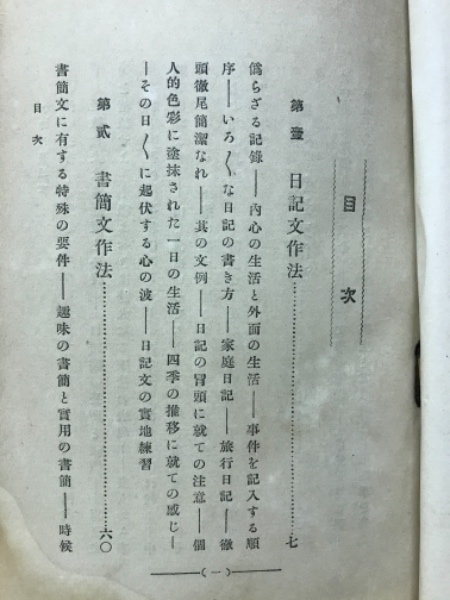 目次
第壹 日記文作法……………………七
僞らざる記錄――內心の生活と外面の生活――事件を記入する順
序――いろ〱な日記の書き方――家庭日記――旅行日記――徹
頭徹尾簡潔なれ――其の文例――日記の冒頭に就ての注意――個
人的色彩に塗抹された一日の生活――四季の推移に就ての感じ―
―その日〱に起伏する心の波――日記文の實地練習
第貳 書簡文作法……………………六〇
書簡文に有する特殊の要件――趣味の書簡と實用の書簡――時候
目次
(一)